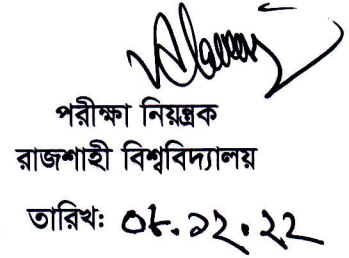 পরীক্ষা নিয়ন্ত্রক
রাজশাহী বিশ্ববিদ্যালয়
তারিখঃ ০৮.১২.২২